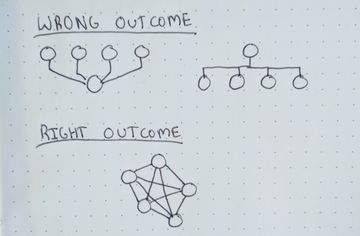 WRONG OUTCOME
RIGHT OUTCOME